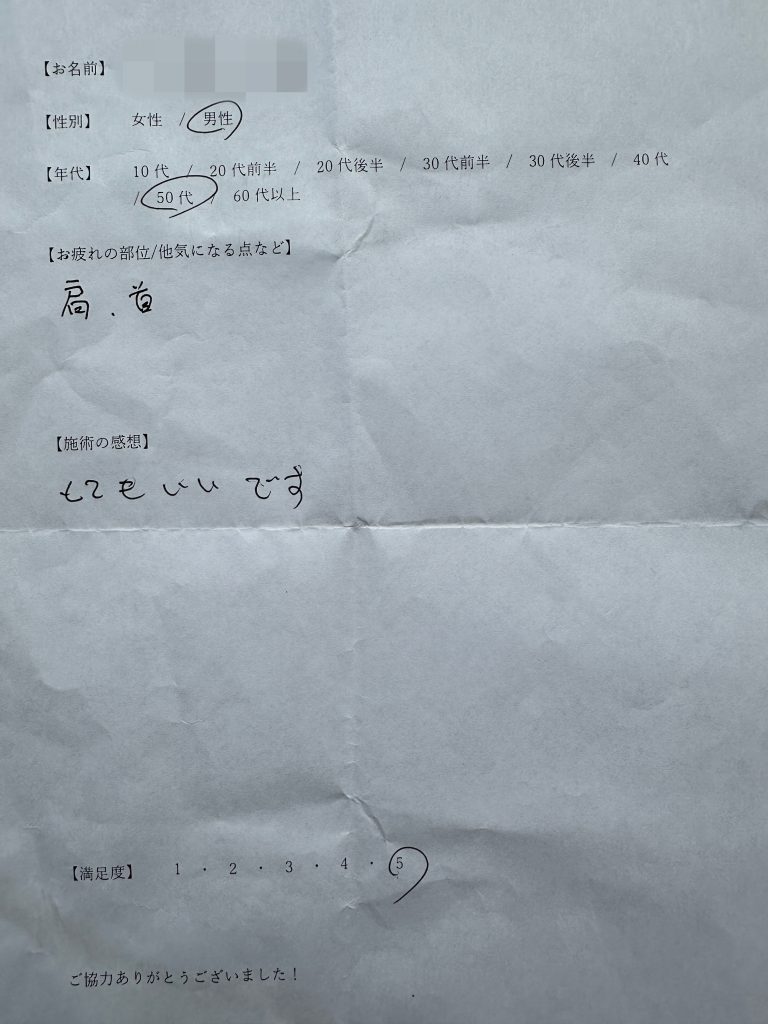 【お名前】
【性別】 女性 / 男性
【年代】 10代 / 20代前半 / 20代後半 / 30代前半 / 30代後半 / 40代
/ 50代 / 60代以上
【お疲れの部位/他気になる点など】
肩、首
【施術の感想】
とてもいいです
【満足度】 1 ・ 2 ・ 3 ・ 4 ・ 5
ご協力ありがとうございました!